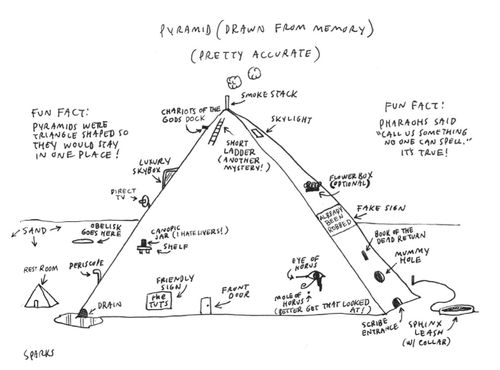 PYRAMID (DRAWN FROM MEMORY)
(PRETTY ACCURATE)
SMOKE STACK
CHARIOTS OF THE
GODS DOCK
SKYLIGHT
FUN FACT:
PYRAMIDS WERE
TRIANGLE SHAPED SO
THEY WOULD STAY
IN ONE PLACE!
FUN FACT:
PHARAOHS SAID
"CALL US SOMETHING
NO ONE CAN SPELL."
IT'S TRUE!
SHORT
LADDER
(ANOTHER
MYSTERY!)
LUXURY
SKYBOX
DIRECT
TV
FLOWER BOX
(OPTIONAL)
ALREADY
BEEN
ROBBED
FAKE SIGN
SAND
OBELISK
GOES HERE
CANOPIC
JAR (I HATE LIVERS!)
SHELF
BOOK OF THE
DEAD RETURN
MUMMY
HOLE
REST ROOM
PERISCOPE
FRIENDLY
SIGN
THE
TUTS
FRONT
DOOR
EYE OF
HORUS
MOLE OF
HORUS
(BETTER GET THAT LOOKED
AT!)
DRAIN
SCRIBE
ENTRANCE
SPHINX
LEASH
(W/ COLLAR)
SPARKS